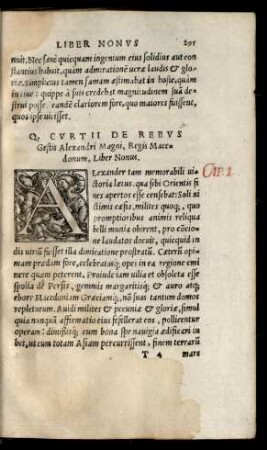 LIBER NONVS 295
nuit. Nec sanè quicquam ingenium eius solidius aut con
stantius habuit, quàm admirationē veræ laudis & glo
riæ. Simplicius tamen famam æstimabat in hoste, quàm
in ciue: quippe à suis credebat magnitudinem suā de
strui posse. eandē clariorem fore, quo maiores fuissent,
quos ipse vicisset.
Q. CVRTII DE REBVS
Gestis Alexandri Magni, Regis Mace-
donum, Liber Nonus.
ALexander tam memorabili ui-
ctoria lætus, qua sibi Orientis fi
nes apertos esse censebat: Soli ui
ctimis cæsis, milites quoq;, quo
promptioribus animis reliqua
belli munia obirent, pro cōcione
laudatos docuit, quicquid in
dis uiriū fuisset illa dimicatione prostratū. Cæterū o-
pimam prædam fore, celebratasq; opes in ea regione emi
nere quam peterent. Proinde iam uilia et obsoleta esse
spolia de Persis, gemmis margaritisq; & auro atq;
ebore Macedoniam Græciamq;, nō suas tantum domos
repleturum. Auidi milites & pecuniæ & gloriæ, simul
quia nunquā affirmatio eius fefellerat eos, pollicentur
operam: dimissisq; cum bona spe nauigia ædificari iu
bet, ut cum totam Asiam percurrissent, finem terrarū
T 4 mare
CAP. 1.